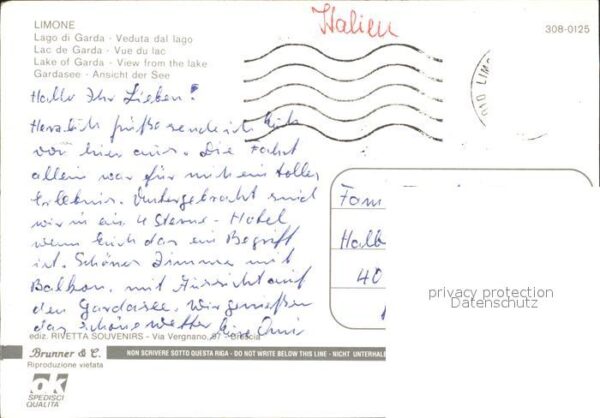 Italien
LIMONE
308-0125
Lago di Garda - Veduta dal lago
Lac de Garda - Vue du lac
Lake of Garda - View from the lake
Gardasee - Ansicht der See
Hallo Ihr Lieben!
Herzlich Grüße sende ich Euch
von hier aus. Die Fahrt
allein war für mich ein tolles
Erlebnis. Untergebracht sind
wir in ein 4 Sterne-Hotel
wenn Euch das ein Begriff
ist. Schönes Zimmer mit
Balkon, mit Aussicht auf
den Gardasee. Wir genießen
das schöne Wetter Eure Omi
Fam
Halb
40
privacy protection
Datenschutz
ediz. RIVETTA SOUVENIRS - Via Vergnano, 97 - Brescia
Brunner & C.
NON SCRIVERE SOTTO QUESTA RIGA - DO NOT WRITE BELOW THIS LINE - NICHT UNTERHALB
Riproduzione vietata
ok
SPEDISCI
QUALITÀ